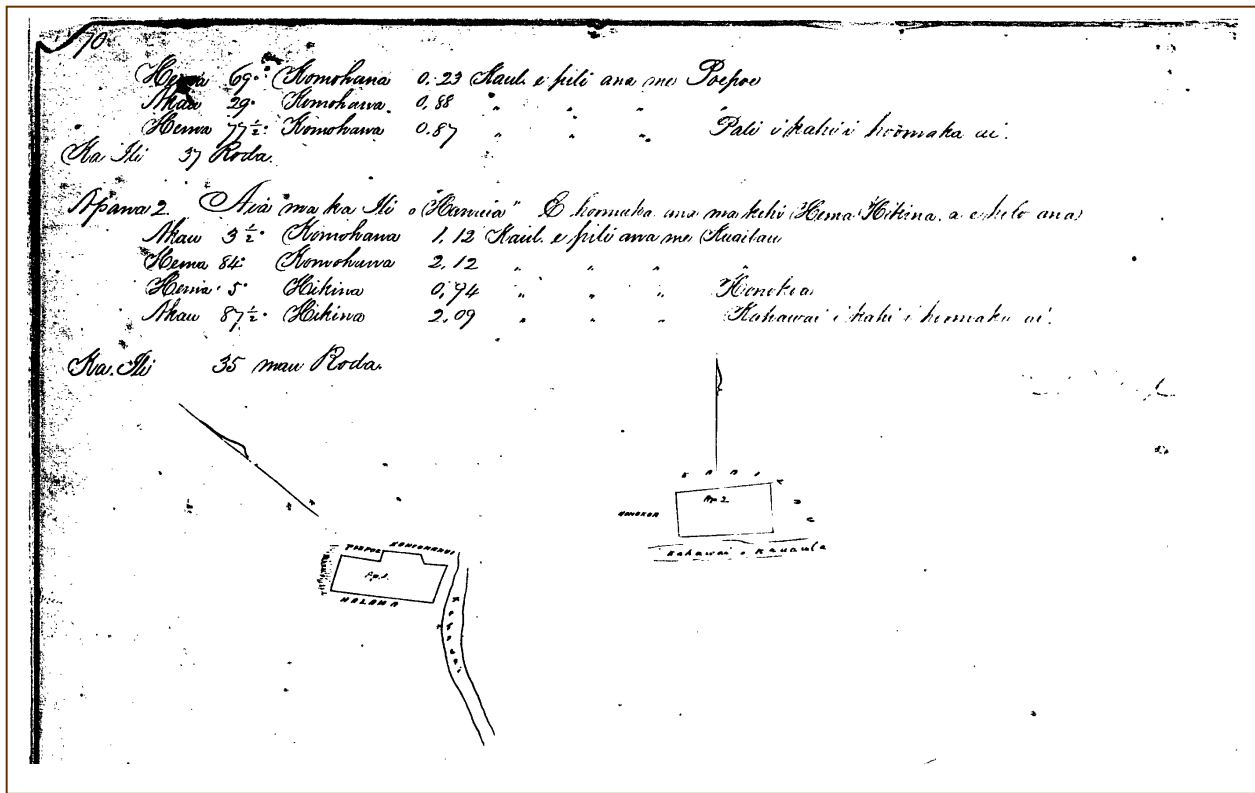 70
Hema 69° Komohana 0.23 Kaul. e pili ana me Poepoe
Akau 29° Komohana 0.88 " " " "
Hema 77½° Komohana 0.87 " " " Pali i kahi i hoomaka ai.
Ka Ili 37 Roda.
Apana 2. Aia ma ka Ili o "Hanuia" E hoomaka ana ma kehi Hema Hikina. a e holo ana
Akau 3½° Komohana 1.12 Kaul. e pili ana me Kuailau
Hema 84° Komohana 2.12 " " " "
Hema 5° Hikina 0.94 " " " Honokea
Akau 87½° Hikina 2.09 " " " Kahawai i kahi i hoomaka ai.
Ka. Ili 35 mau Roda.
Ap. 2
Kahawai o Kauaula
POEPOE
Ap. 1.
MALAMA
Kahawai